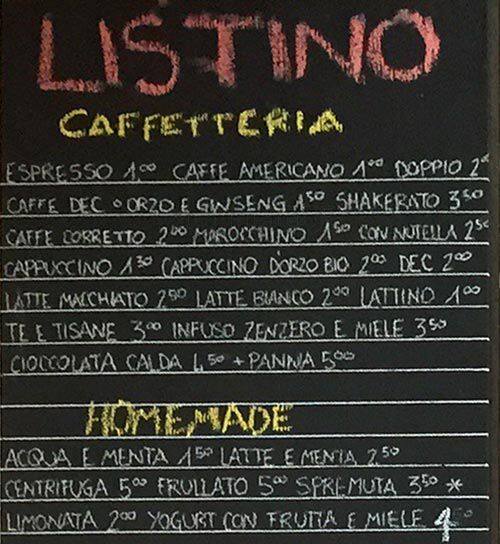 LISTINO
CAFFETTERIA
ESPRESSO 1.00 CAFFE AMERICANO 1.00 DOPPIO
CAFFE DEC O ORZO E GINSENG 1.50 SHAKERATO 3.50
CAFFE CORRETTO 2.00 MAROCCHINO 1.50 CON NUTELLA 2.50
CAPPUCCINO 1.30 CAPPUCCINO D'ORZO BIO 2.00 DEC 2.00
LATTE MACCHIATO 2.50 LATTE BIANCO 2.00 LATTINO 1.00
TE E TISANE 3.00 INFUSO ZENZERO E MIELE 3.50
CIOCCOLATA CALDA 4.50 + PANNA 5.00
HOMEMADE
ACQUA E MENTA 1.50 LATTE E MENTA 2.50
CENTRIFUGA 5.00 FRULLATO 5.00 SPREMUTA 3.50 *
LIMONATA 2.00 YOGURT CON FRUTTA E MIELE